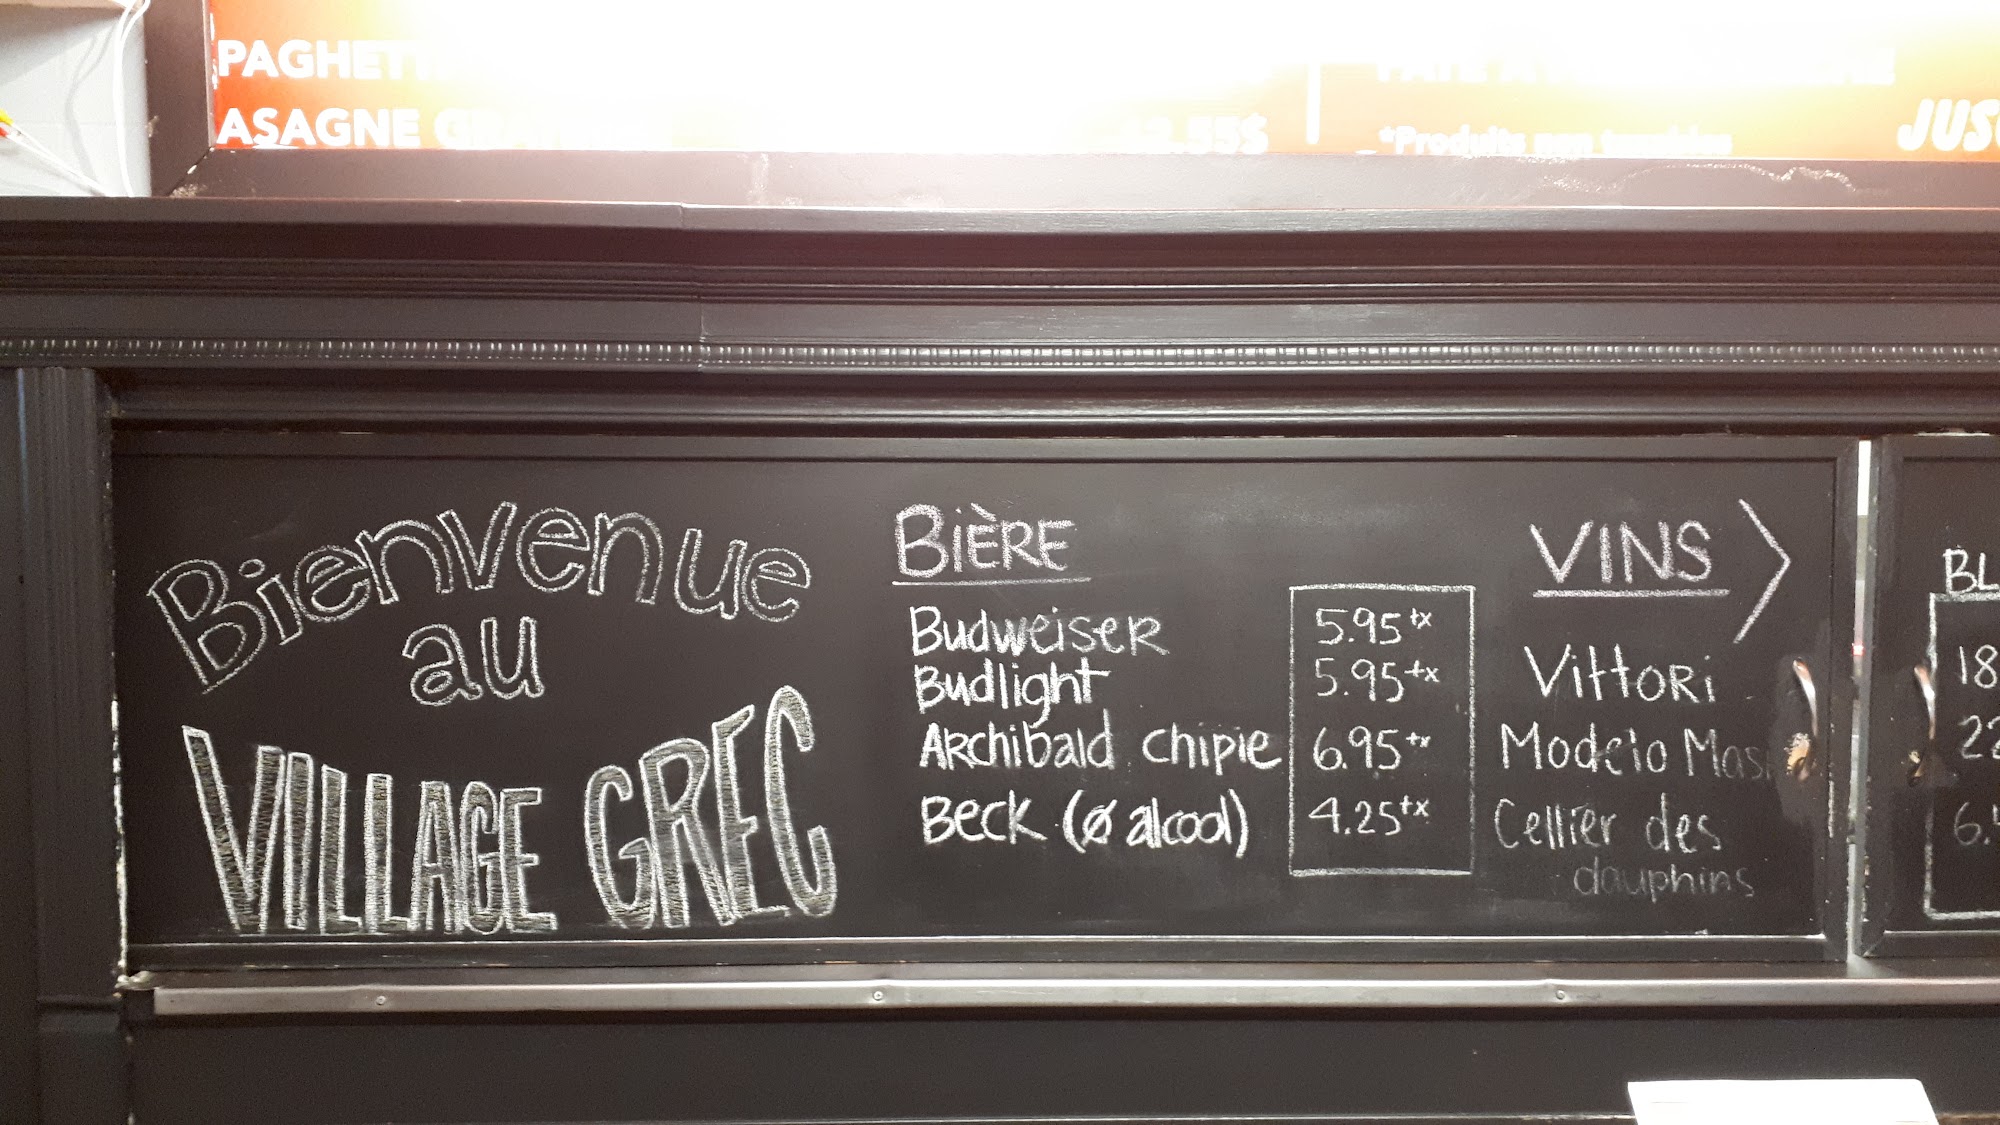 PAGHETTI
ASAGNE GRATINÉE
.55$
*Produits non taxables
JUS
Bienvenue
au
VILLAGE GREC
BIÈRE
Budweiser 5.95 tx
Budlight 5.95 tx
Archibald chipie 6.95 tx
Beck (ø alcool) 4.25 tx
VINS >
Vittori
Modelo Mas
Cellier des
dauphins
BL
18
22
6.